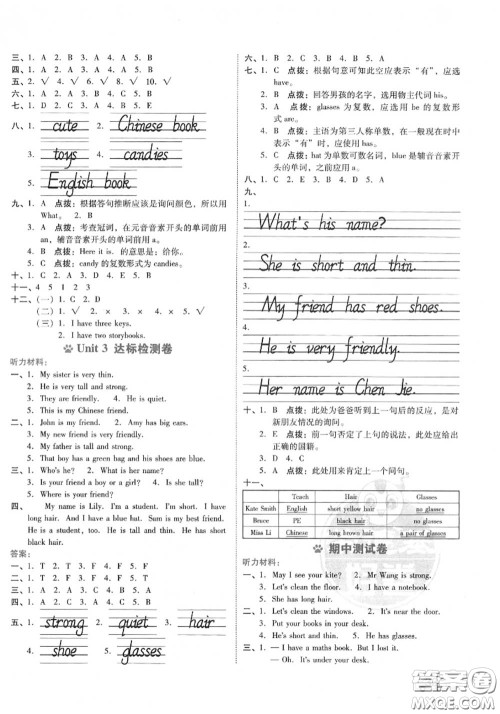 三、1. A 2. B 3. A 4. B 5. B
四、1. A 2. A 3. B 4. A 5. B
五、2. √ 4. √ 6. √ 8. √ 10. √
六、1. A 2. A 3. A 4. B 5. B
七、1. D 2. A 3. C 4. B 5. E
八、1. cute 2. Chinese book
3. toys 4. candies
5. English book
九、1. A 点拨：根据答句推断应该是询问颜色，所以用
What。 2. B
3. A 点拨：考查冠词，在元音音素开头的单词前用
an，辅音音素开头的单词前用 a。
4. B 点拨：Here it is. 的意思是：给你。
5. C 点拨：candy 的复数形式为 candies。
十、1. C 2. A 3. D 4. E 5. B
十一、4 5 1 2 3
十二、(一) 1. C 2. D
(二) 1. √ 2. × 3. × 4. √ 5. √
(三) 1. I have three keys.
2. I have two storybooks.
Unit 3 达标检测卷
听力材料：
一、1. My sister is very thin.
2. He is very tall and strong.
3. They are friendly. 4. He is quiet.
5. This is my Chinese friend.
二、1. John is my friend. 2. Amy has big ears.
3. My new friend is very friendly.
4. My father is tall and strong.
5. That boy has a green bag and his shoes are blue.
三、1. Who's he? 2. What is her name?
3. Is your friend a boy or a girl? 4. Is she tall?
5. Where is your friend?
四、 My name is Lily. I'm a student. I'm short. I have
long hair. And I have a friend. Sam is my best friend.
He is a student, too. He is tall and thin. He has
short black hair.
答案：
一、1. T 2. F 3. F 4. T 5. F
二、1. A 2. A 3. B 4. A 5. B
三、1. B 2. A 3. A 4. B 5. B
四、1. A 2. A 3. C 4. A 5. B
五、1. strong 2. quiet 3. hair
4. shoe 5. glasses
六、1. B 2. C 3. B 4. B 5. A
七、1. C 点拨：根据句意可知此空应表示“有”，应选
have。
2. B 点拨：回答男孩的名字，选用物主代词 his。
3. A 点拨：glasses 为复数，应选用 be 的复数形
式 are。
4. B 点拨：主语为第三人称单数，在一般现在时中
表示“有”时，应使用 has。
5. C 点拨：hat 为单数可数名词，blue 是辅音音素开
头的单词，之前应用 a。
八、1. C 2. E 3. D 4. B 5. A
九、
1. What's his name?
2. She is short and thin.
3. My friend has red shoes.
4. He is very friendly.
5. Her name is Chen Jie.
十、1. B 点拨：此处为爸爸听到上一句后的反应，是对
新朋友情况的询问。
2. E 点拨：前一句否定了上句的说法，此处应给出
正确的国籍。 3. D 4. C
5. A 点拨：此处用来肯定上一个问句。
十一、
Teach Hair Glasses
Kate Smith English short yellow hair no glasses
Bruce PE black hair no glasses
Miss Li Chinese long brown hair a pair of glasses
期中测试卷
听力材料：
一、1. May I see your kite? 2. Mr Wang is strong.
3. Let's clean the floor. 4. I have a notebook.
5. They are friendly.
二、1. Let's clean the windows. 2. It's near the door.
3. Put your books in your desk.
4. He's short and thin. 5. I'd like some rice.
6. She has long hair.
三、1. — I have a maths book. But I lost it.
— Oh. It's under your desk.